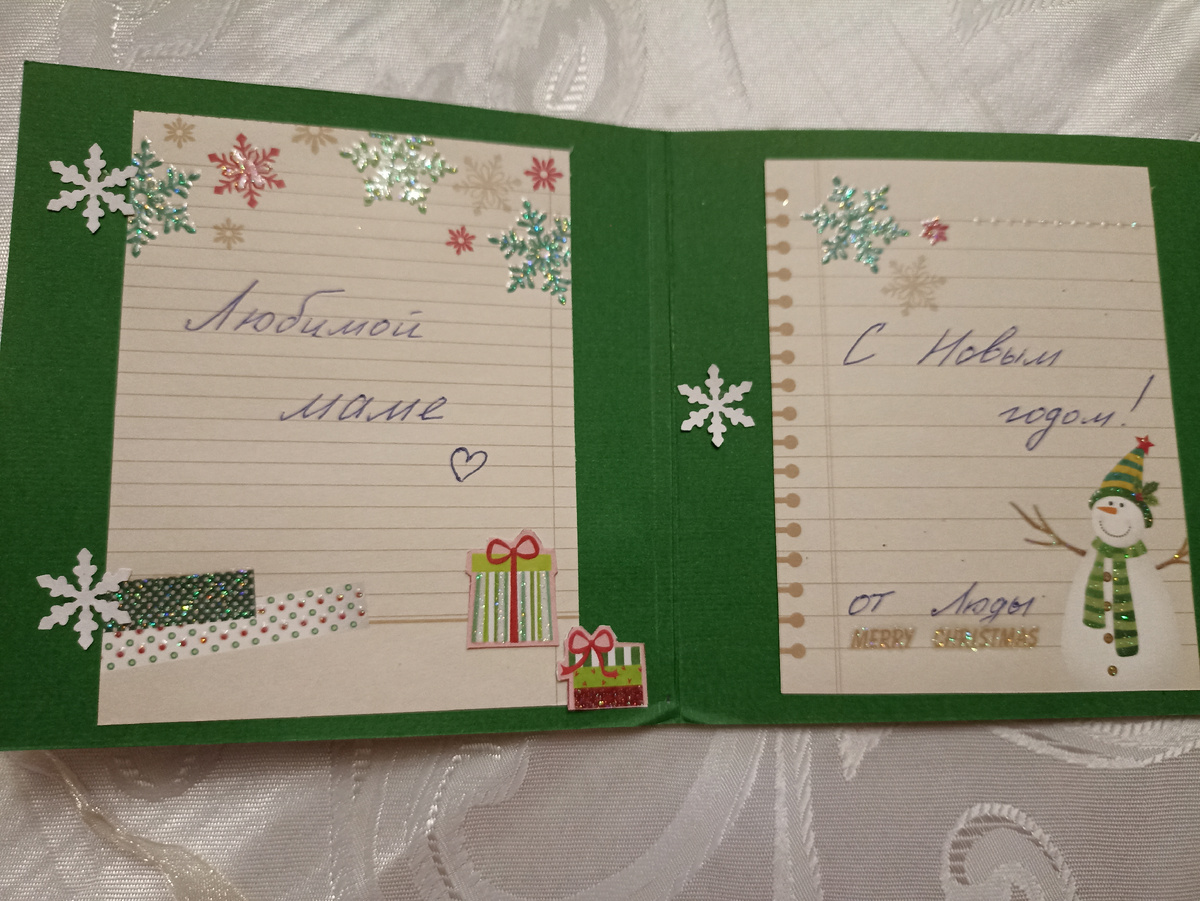 Любимой
маме
С Новым
годом!
от Люды
MERRY CHRISTMAS